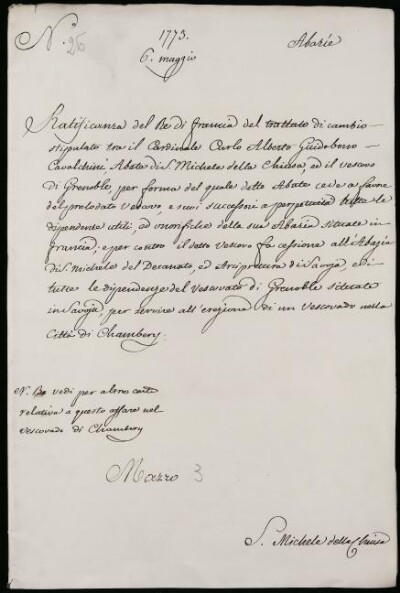 N.° 26
1773. Abazie
6. maggio
Ratificanza del Re di francia del trattato di cambio
stipulato tra il Cardinale Carlo Alberto Guidobono
Cavalchini, Abate di S. Michele della Chiusa, ed il vescovo
di Grenoble, per forma del quale detto Abate cede a favore
del prelodato Vescovo, e suoi successori a perpetuità tutte le
dipendenze utili, ed onorifiche della sua Abazia situate in
francia; e per contro il detto Vescovo fa cessione all'Abazia
di S. Michele del Decanato, ed Arcipretura di Savoja, e di
tutte le dipendenze del Vescovato di Grenoble situate
in Savoja, per servire all'erezione di un Vescovado nella
Città di Chambery.
N. Be vedi per altre carte
relative a questo affare nel
Vescovado di Chambery
Mazzo 3
S. Michele della Chiusa